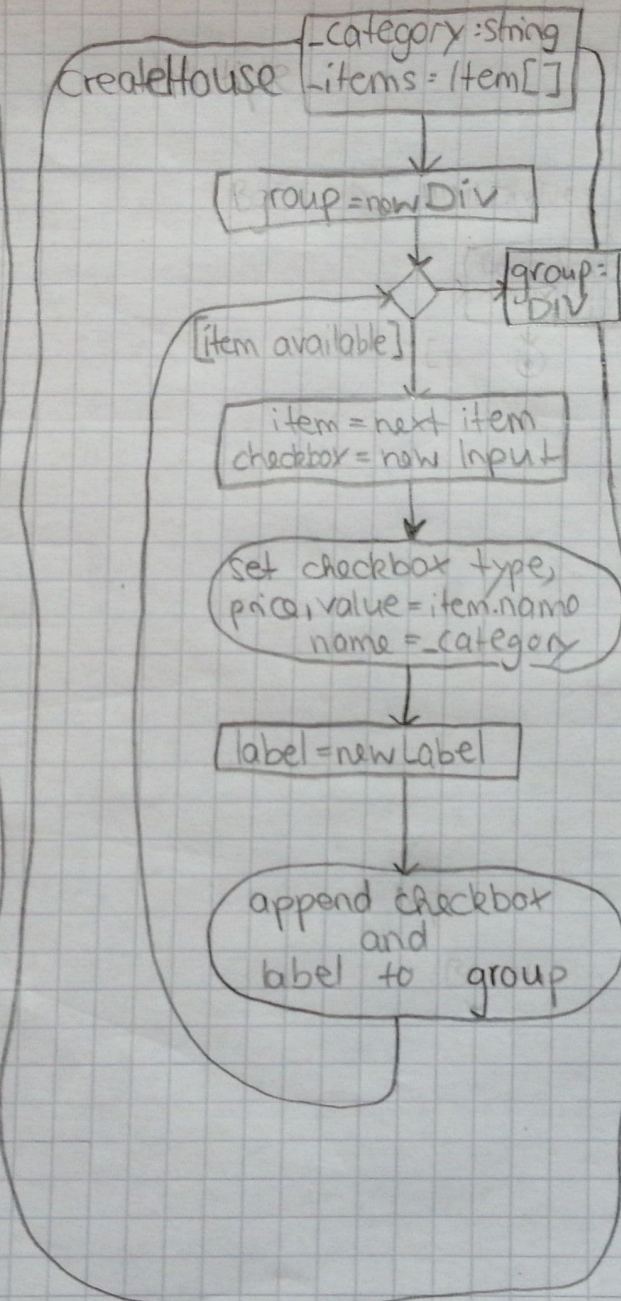 _category:string
CreateHouse
_items = Item[]
group=new Div
group:
DIV
[item available]
item = next item
checkbox = new Input
set checkbox type,
price, value = item.name
name = _category
label = new Label
append checkbox
and
label to group